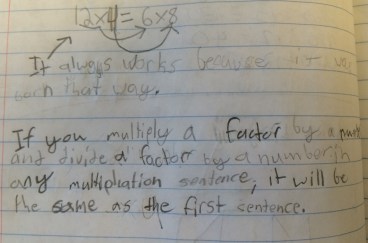 12x4=6x8
It always works because it was
born that way.
If you multiply a factor by a
and divide a factor by a number in
any multiplication sentence, it will be
the same as the first sentence.